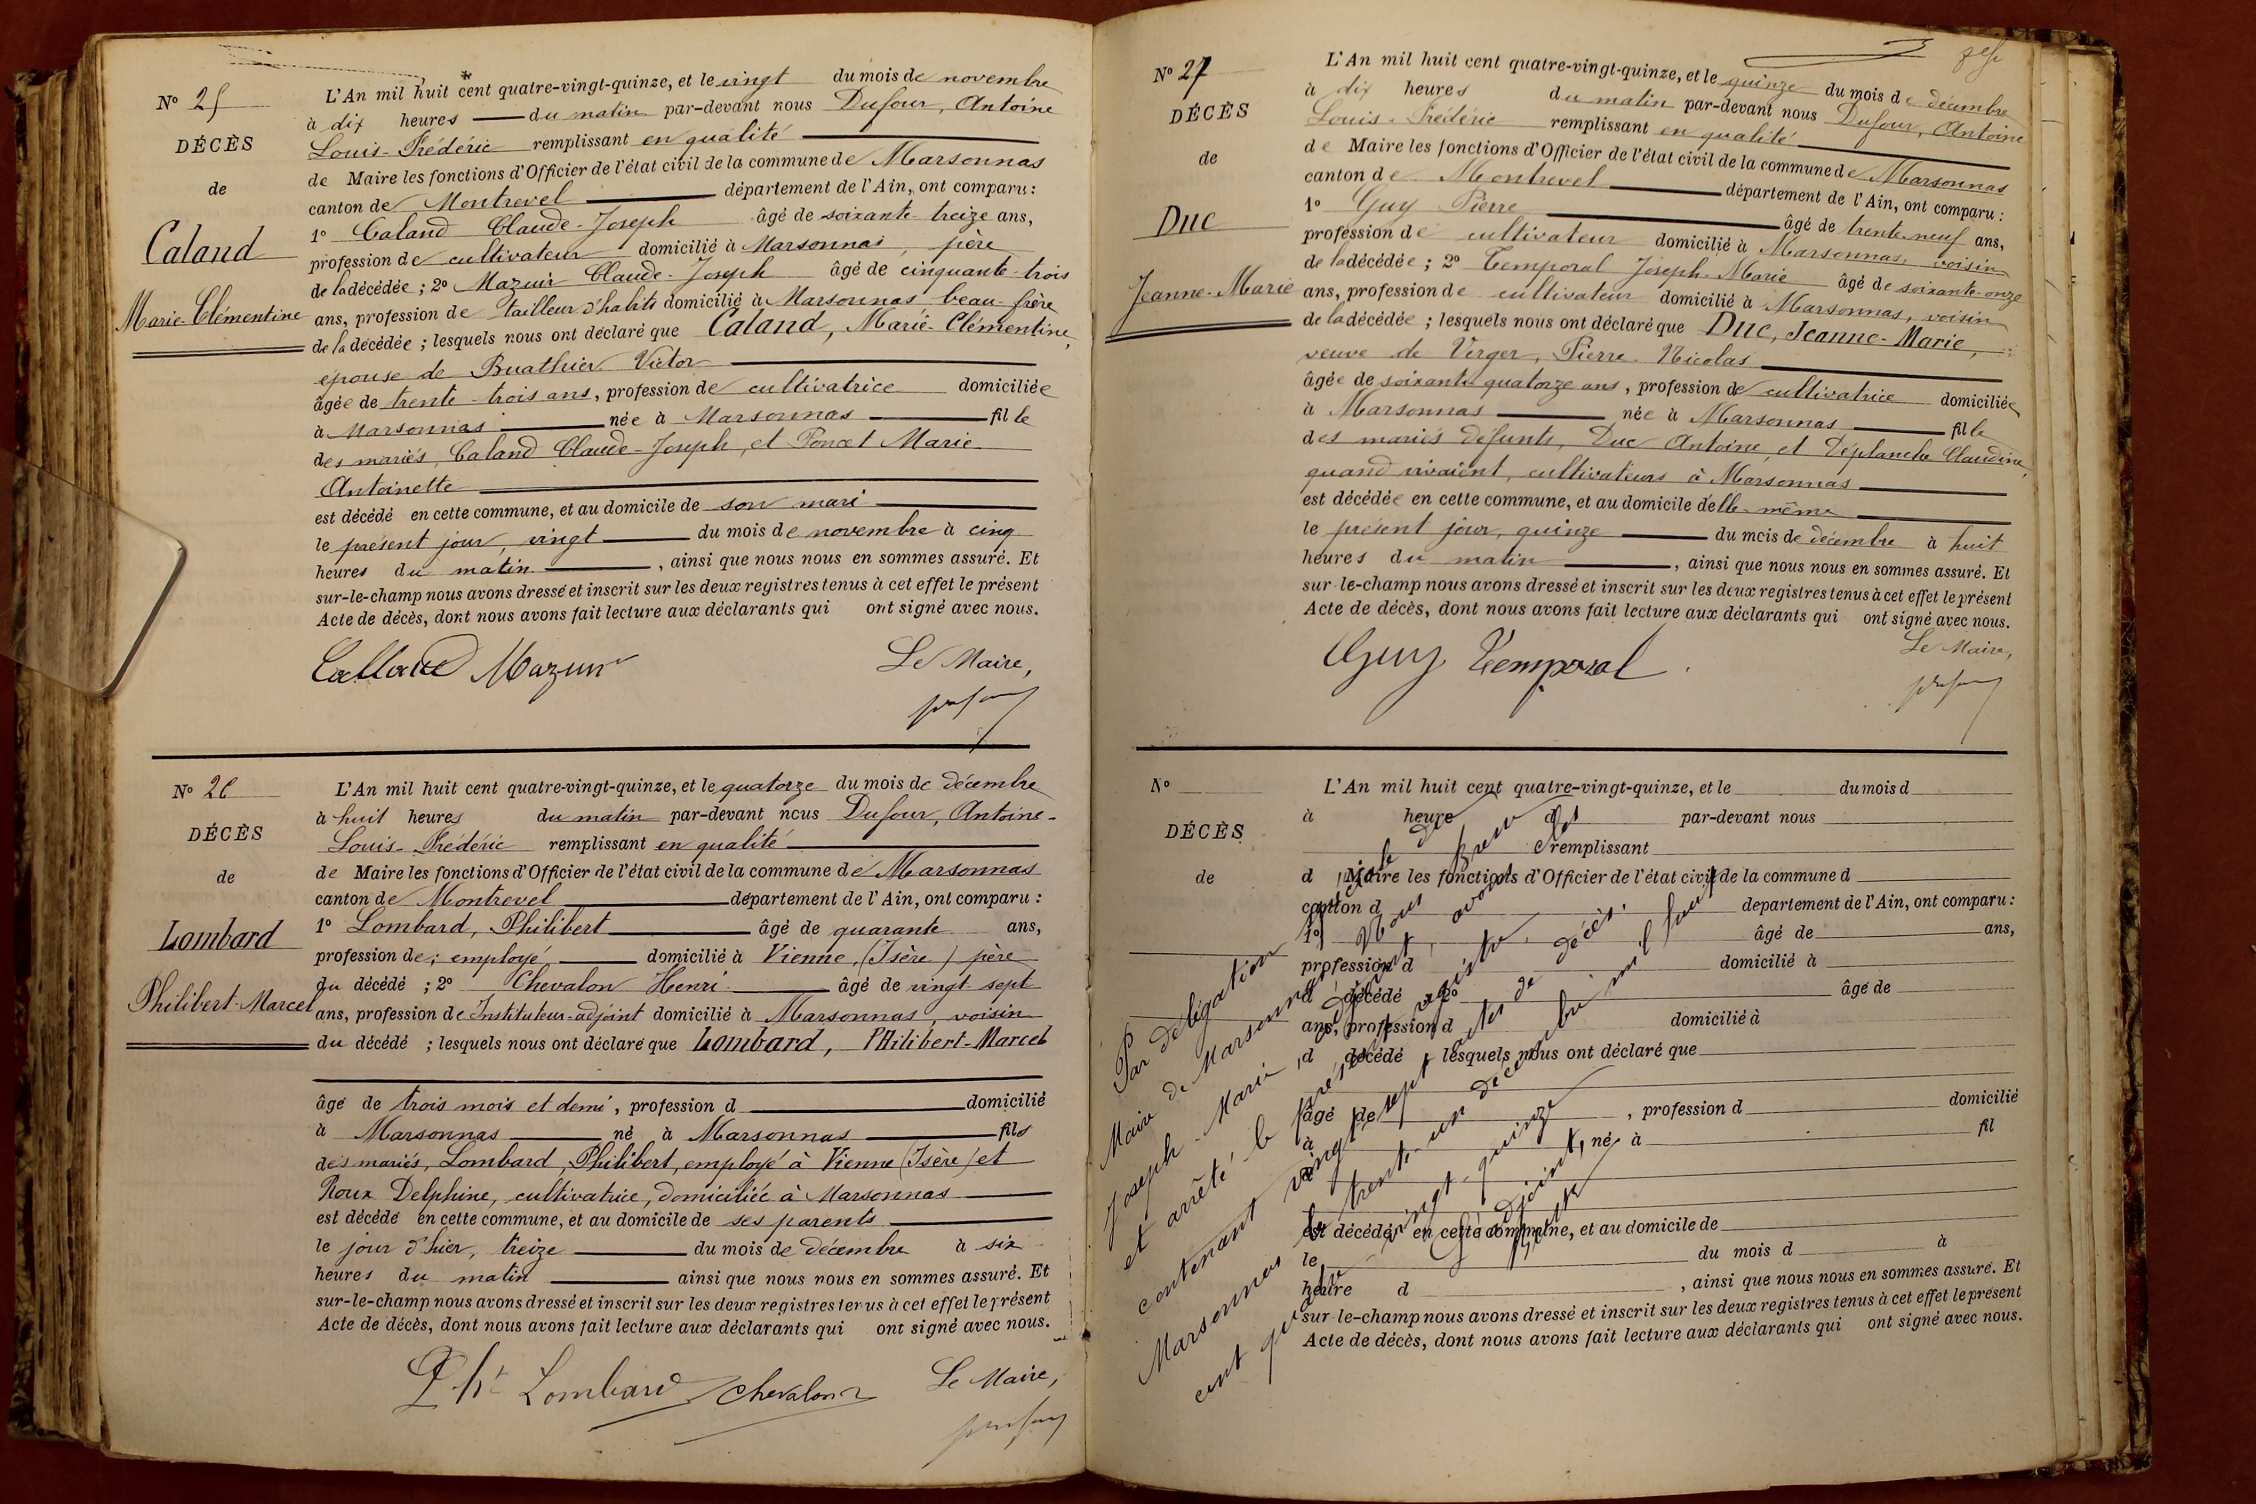 Nº 25
DÉCÈS
de
Caland
Marie-Clémentine
L'An mil huit cent quatre-vingt-quinze, et le vingt du mois de novembre
à dix heures du matin par-devant nous Dufour, Antoine
Louis-Frédéric remplissant en qualité
de Maire les fonctions d'Officier de l'état civil de la commune de Marsonnas
canton de Montrevel département de l'Ain, ont comparu :
1º Caland Claude-Joseph âgé de soixante-treize ans,
profession de cultivateur domicilié à Marsonnas, père
de la décédée ; 2º Mazuir Claude-Joseph âgé de cinquante-trois
ans, profession de tailleur d'habits domicilié à Marsonnas beau-frère
de la décédée ; lesquels nous ont déclaré que Caland, Marie-Clémentine,
épouse de Buathier Victor
âgée de trente-trois ans, profession de cultivatrice domiciliée
à Marsonnas née à Marsonnas fille
des mariés, Caland Claude-Joseph, et Poncet Marie-
Antoinette
est décédé en cette commune, et au domicile de son mari
le présent jour, vingt du mois de novembre à cinq
heures du matin, ainsi que nous nous en sommes assuré. Et
sur-le-champ nous avons dressé et inscrit sur les deux registres tenus à cet effet le présent
Acte de décès, dont nous avons fait lecture aux déclarants qui ont signé avec nous.
Le Maire,
Calland Mazuir
Dufour
Nº 26
DÉCÈS
de
Lombard
Philibert-Marcel
L'An mil huit cent quatre-vingt-quinze, et le quatorze du mois de décembre
à huit heures du matin par-devant nous Dufour, Antoine-
Louis-Frédéric remplissant en qualité
de Maire les fonctions d'Officier de l'état civil de la commune de Marsonnas
canton de Montrevel département de l'Ain, ont comparu :
1º Lombard, Philibert âgé de quarante ans,
profession de : employé domicilié à Vienne, (Isère) père
du décédé ; 2º Chevalon Henri âgé de vingt-sept
ans, profession de Instituteur-adjoint domicilié à Marsonnas, voisin
du décédé ; lesquels nous ont déclaré que Lombard, Philibert-Marcel
âgé de trois mois et demi, profession d domicilié
à Marsonnas né à Marsonnas fils
des mariés, Lombard, Philibert, employé à Vienne (Isère) et
Roux Delphine, cultivatrice, domiciliée à Marsonnas
est décédé en cette commune, et au domicile de ses parents
le jour d'hier, treize du mois de décembre à six
heures du matin ainsi que nous nous en sommes assuré. Et
sur-le-champ nous avons dressé et inscrit sur les deux registres tenus à cet effet le présent
Acte de décès, dont nous avons fait lecture aux déclarants qui ont signé avec nous.
Pht Lombard Chevalon Le Maire,
Dufour
Nº 27
DÉCÈS
de
Duc
Jeanne-Marie
L'An mil huit cent quatre-vingt-quinze, et le quinze du mois de décembre
à dix heures du matin par-devant nous Dufour, Antoine
Louis-Frédéric remplissant en qualité
de Maire les fonctions d'Officier de l'état civil de la commune de Marsonnas
canton de Montrevel département de l'Ain, ont comparu :
1º Guy Pierre âgé de trente-neuf ans,
profession de cultivateur domicilié à Marsonnas, voisin
de la décédée ; 2º Temporal Joseph-Marie âgé de soixante-onze
ans, profession de cultivateur domicilié à Marsonnas, voisin
de la décédée ; lesquels nous ont déclaré que Duc, Jeanne-Marie,
veuve de Verger, Pierre-Nicolas
âgée de soixante quatorze ans, profession de cultivatrice domiciliée
à Marsonnas née à Marsonnas fille
des mariés défunts, Duc Antoine, et Déplanche Claudine,
quand vivaient, cultivateurs à Marsonnas
est décédée en cette commune, et au domicile d'elle-même
le présent jour, quinze du mois de décembre à huit
heures du matin, ainsi que nous nous en sommes assuré. Et
sur-le-champ nous avons dressé et inscrit sur les deux registres tenus à cet effet le présent
Acte de décès, dont nous avons fait lecture aux déclarants qui ont signé avec nous.
Le Maire,
Guy Temporal
Dufour
Nº
DÉCÈS
de
L'An mil huit cent quatre-vingt-quinze, et le du mois d
à heure d par-devant nous
remplissant
d Maire les fonctions d'Officier de l'état civil de la commune d
canton d département de l'Ain, ont comparu :
1º âgé de ans,
profession d domicilié à
d décédé 2º âgé de
ans, profession d domicilié à
d décédé lesquels nous ont déclaré que
âgé de , profession d domicilié
à né à fil
est décédé en cette commune, et au domicile de
le du mois d à
heure d , ainsi que nous nous en sommes assuré. Et
sur-le-champ nous avons dressé et inscrit sur les deux registres tenus à cet effet le présent
Acte de décès, dont nous avons fait lecture aux déclarants qui ont signé avec nous.
Par délégation
Maire de Marsonnas, Nous
Joseph-Marie, adjoint, avons
et arrêté le présent registre
contenant vingt-sept actes de décès.
Marsonnas le trente-un décembre mil huit
cent quatre-vingt-quinze
L'adjoint,